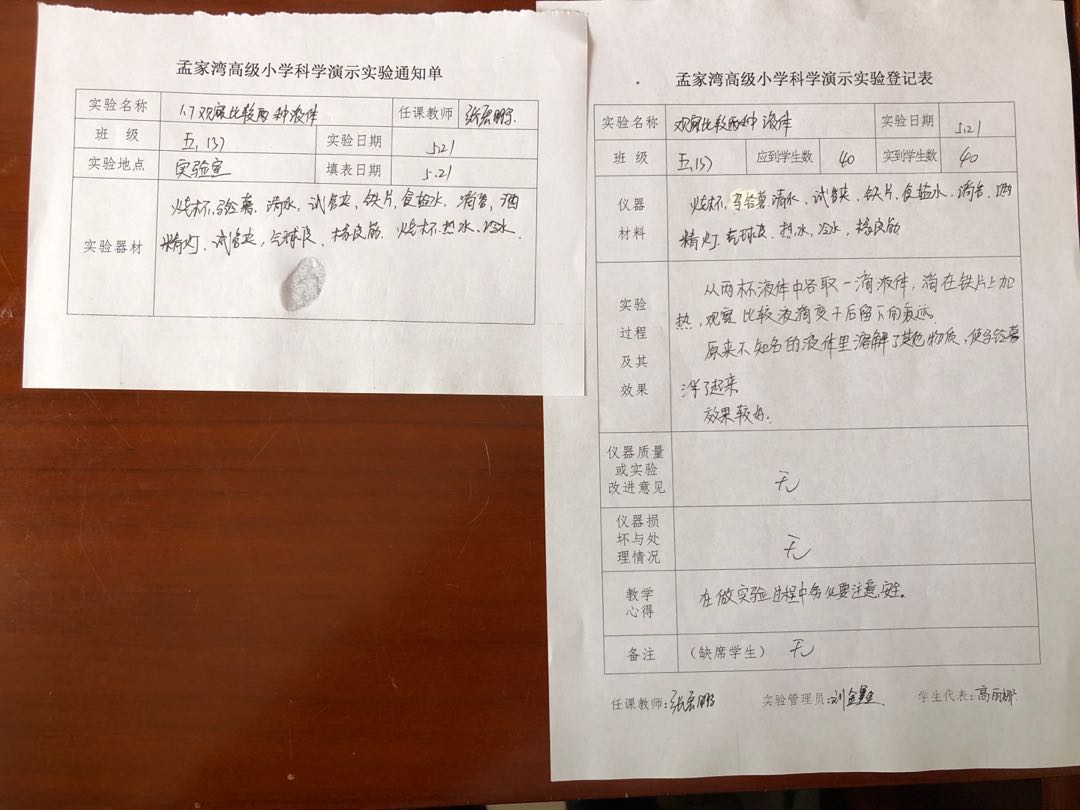 孟家湾高级小学科学演示实验通知单
实验名称 1.7 观察比较两种液体 任课教师
班 级 五,(3) 实验日期 5.21
实验地点 实验室 填表日期 5.21
实验器材
烧杯、马铃薯、清水、试管夹、铁片、食盐水、滴管、酒
精灯、试管夹、气球皮、橡皮筋、烧杯、热水、冷水、
孟家湾高级小学科学演示实验登记表
实验名称 观察比较两种液体 实验日期 5.21
班 级 五,(3) 应到学生数 40 实到学生数 40
仪器
材料
烧杯、马铃薯、清水、试管夹、铁片、食盐水、滴管、酒
精灯、气球皮、热水、冷水、橡皮筋
实验
过程
及其
效果
从两杯液体中各取一滴液体,滴在铁片上加
热,观察比较液滴变干后留下的痕迹.
原来不知名的液体里溶解了其他物质,使马铃薯
浮了起来
效果较好.
仪器质量
或实验
改进意见
无
仪器损
坏与处
理情况
无
教学
心得
在做实验过程中务必要注意安全。
备注 (缺席学生) 无
任课教师: 实验管理员: 学生代表:高丽娜